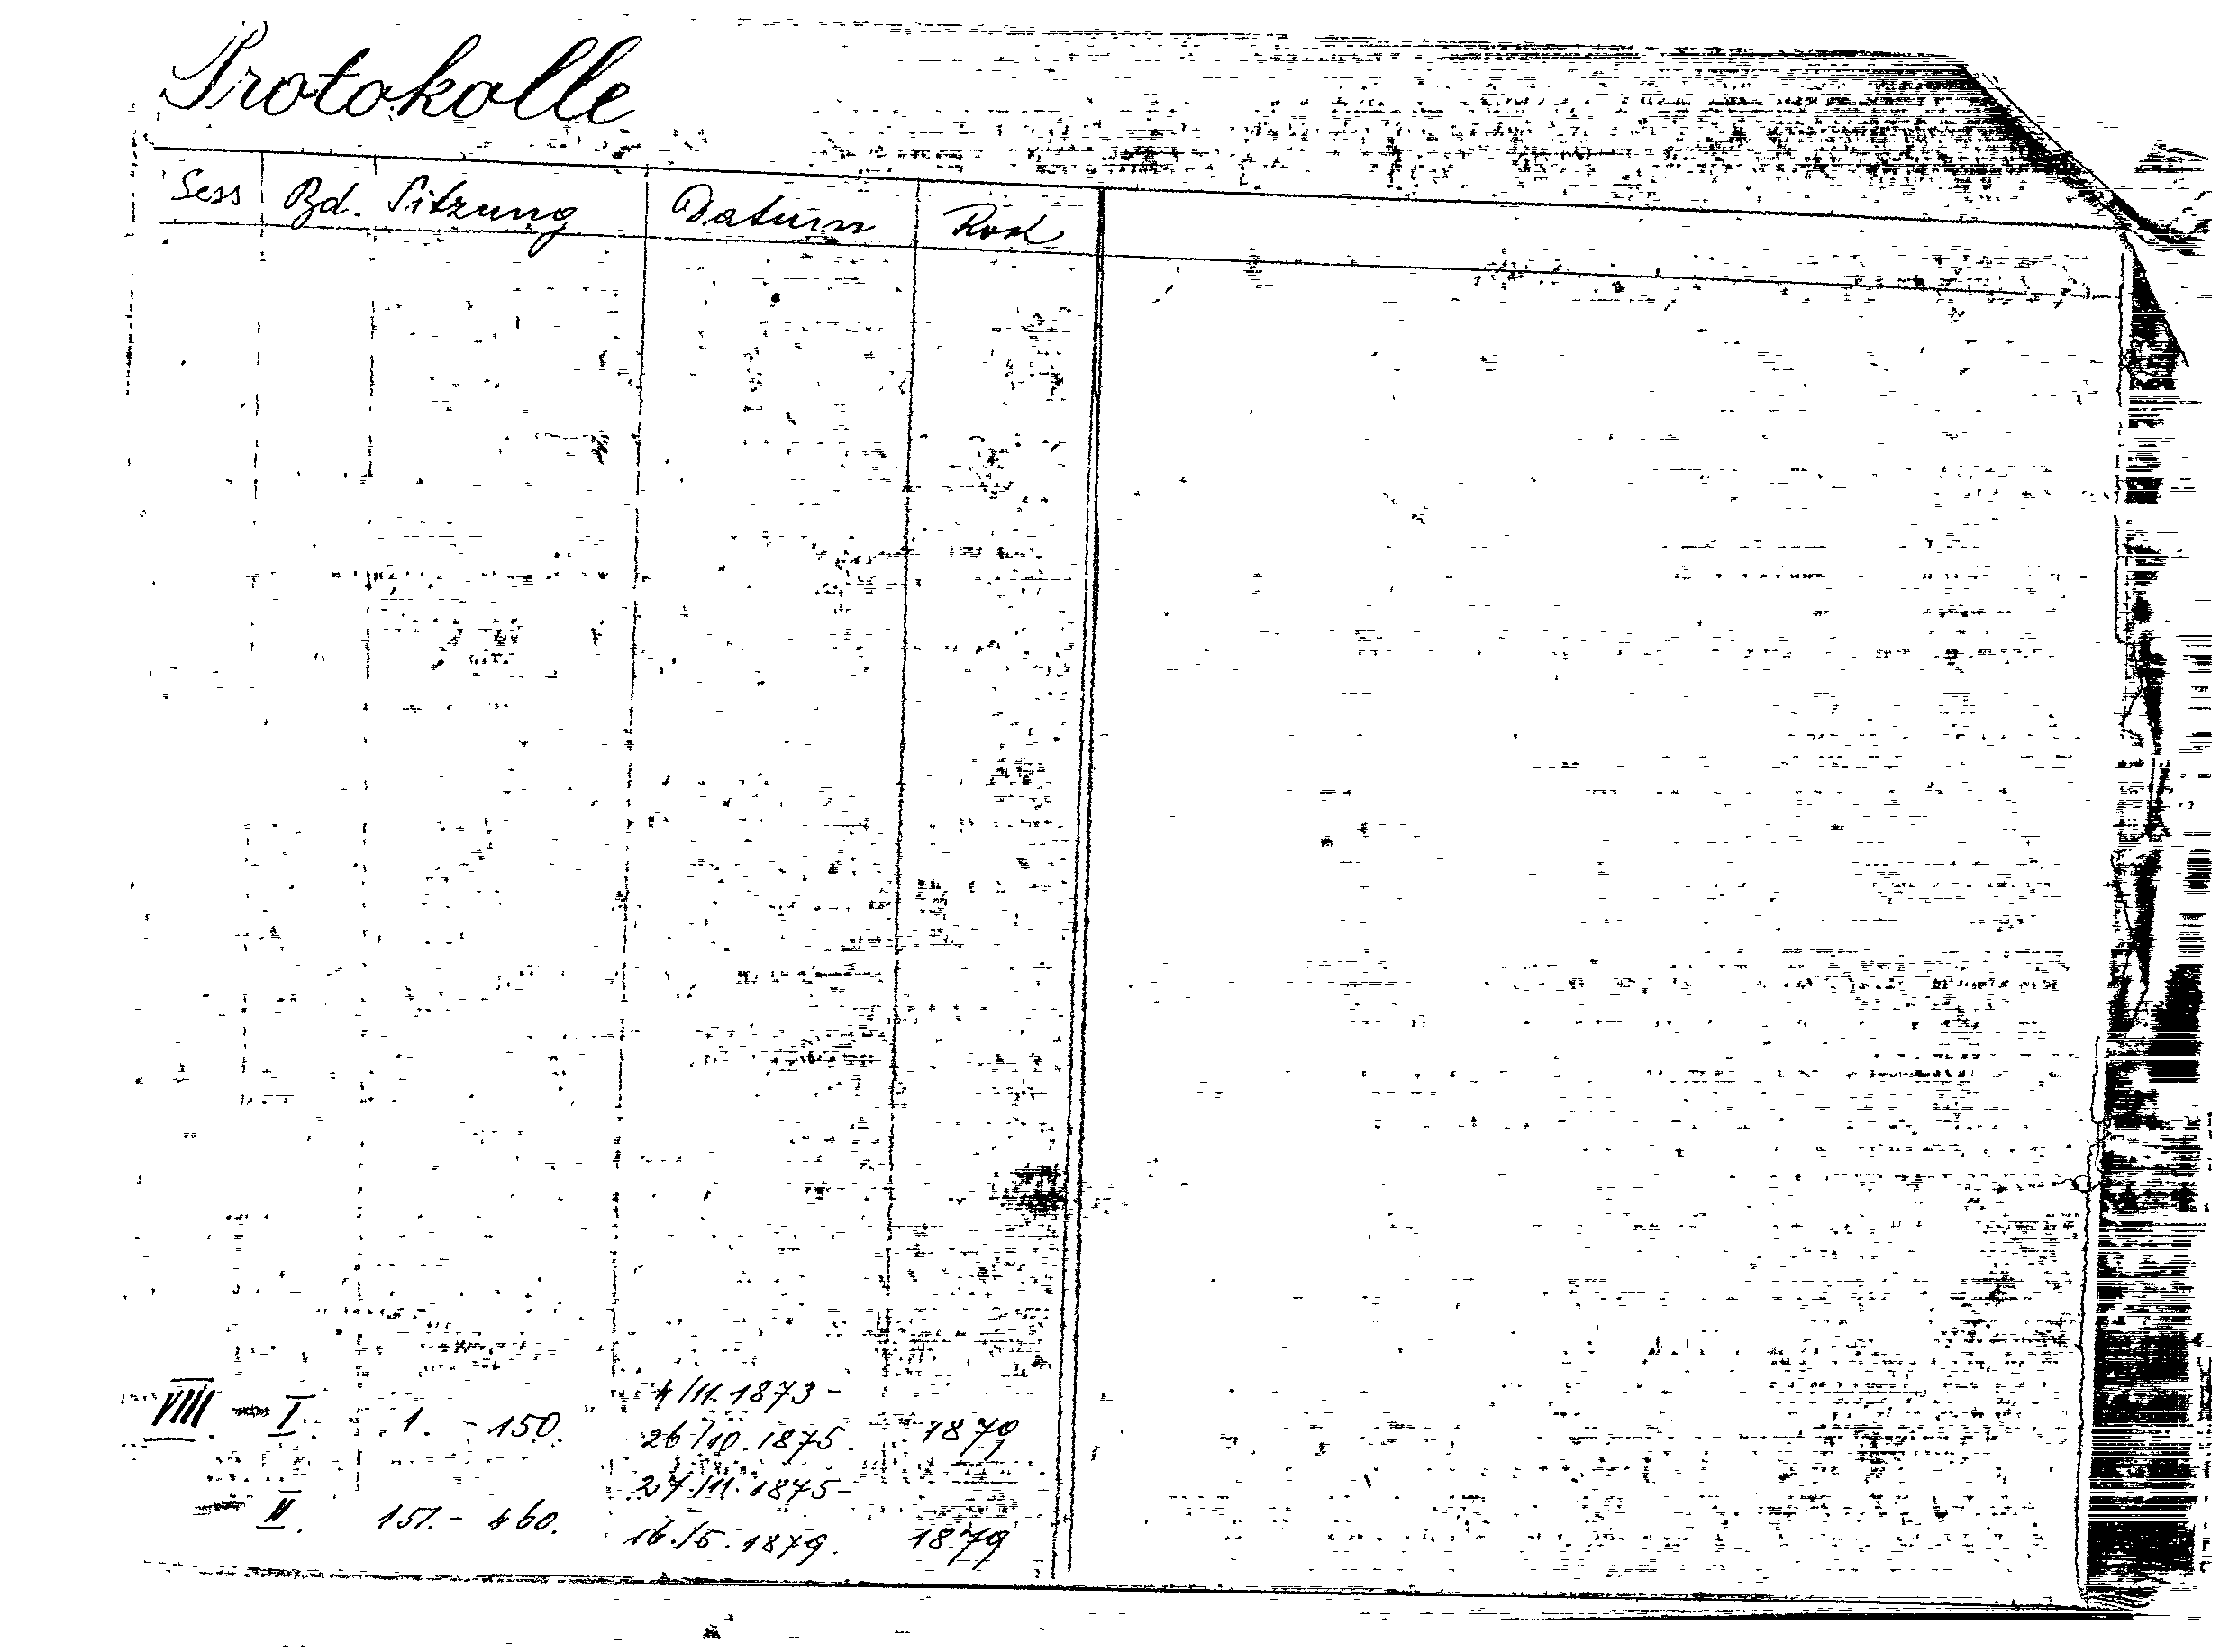 Protokolle
Sess Bd. Sitzung Datum
4/11. 1873 -
VIII. I. 1. - 150. 26/10. 1875. 1879
27./11. 1875 -
II. 151. - 460. 16./5. 1879. 1879